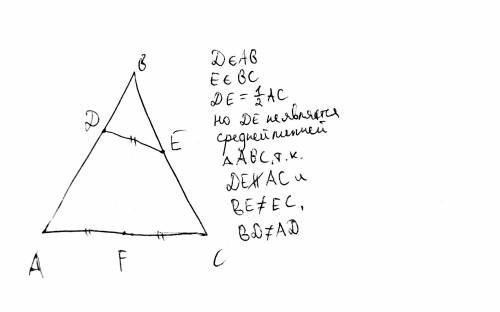 B
D
E
A
F
C
D∈AB
E∈BC
DE = 1/2 AC
но DE не является
средней линией
△ABC, т.к.
DE∦AC и
BE≠EC,
BD≠AD